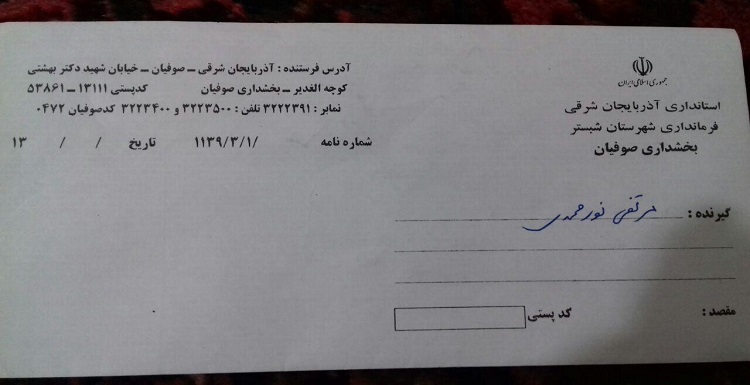 جمهوری اسلامی ایران
استانداری آذربایجان شرقی
فرمانداری شهرستان شبستر
بخشداری صوفیان
آدرس فرستنده : آذربایجان شرقی ــ صوفیان ــ خیابان شهید دکتر بهشتی
کوچه الغدیر ــ بخشداری صوفیان کدپستی ۱۳۱۱۱ ــ ۵۳۸۶۱
نمابر : ۳۲۲۲۳۹۱ تلفن : ۳۲۲۳۵۰۰ و ۳۲۲۳۴۰۰ کدصوفیان ۰۴۷۲
شماره نامه ۱۱۳۹/۳/۱/ تاریخ / / ۱۳
گیرنده : مرتضی نورمحمدی
مقصد : کد پستی